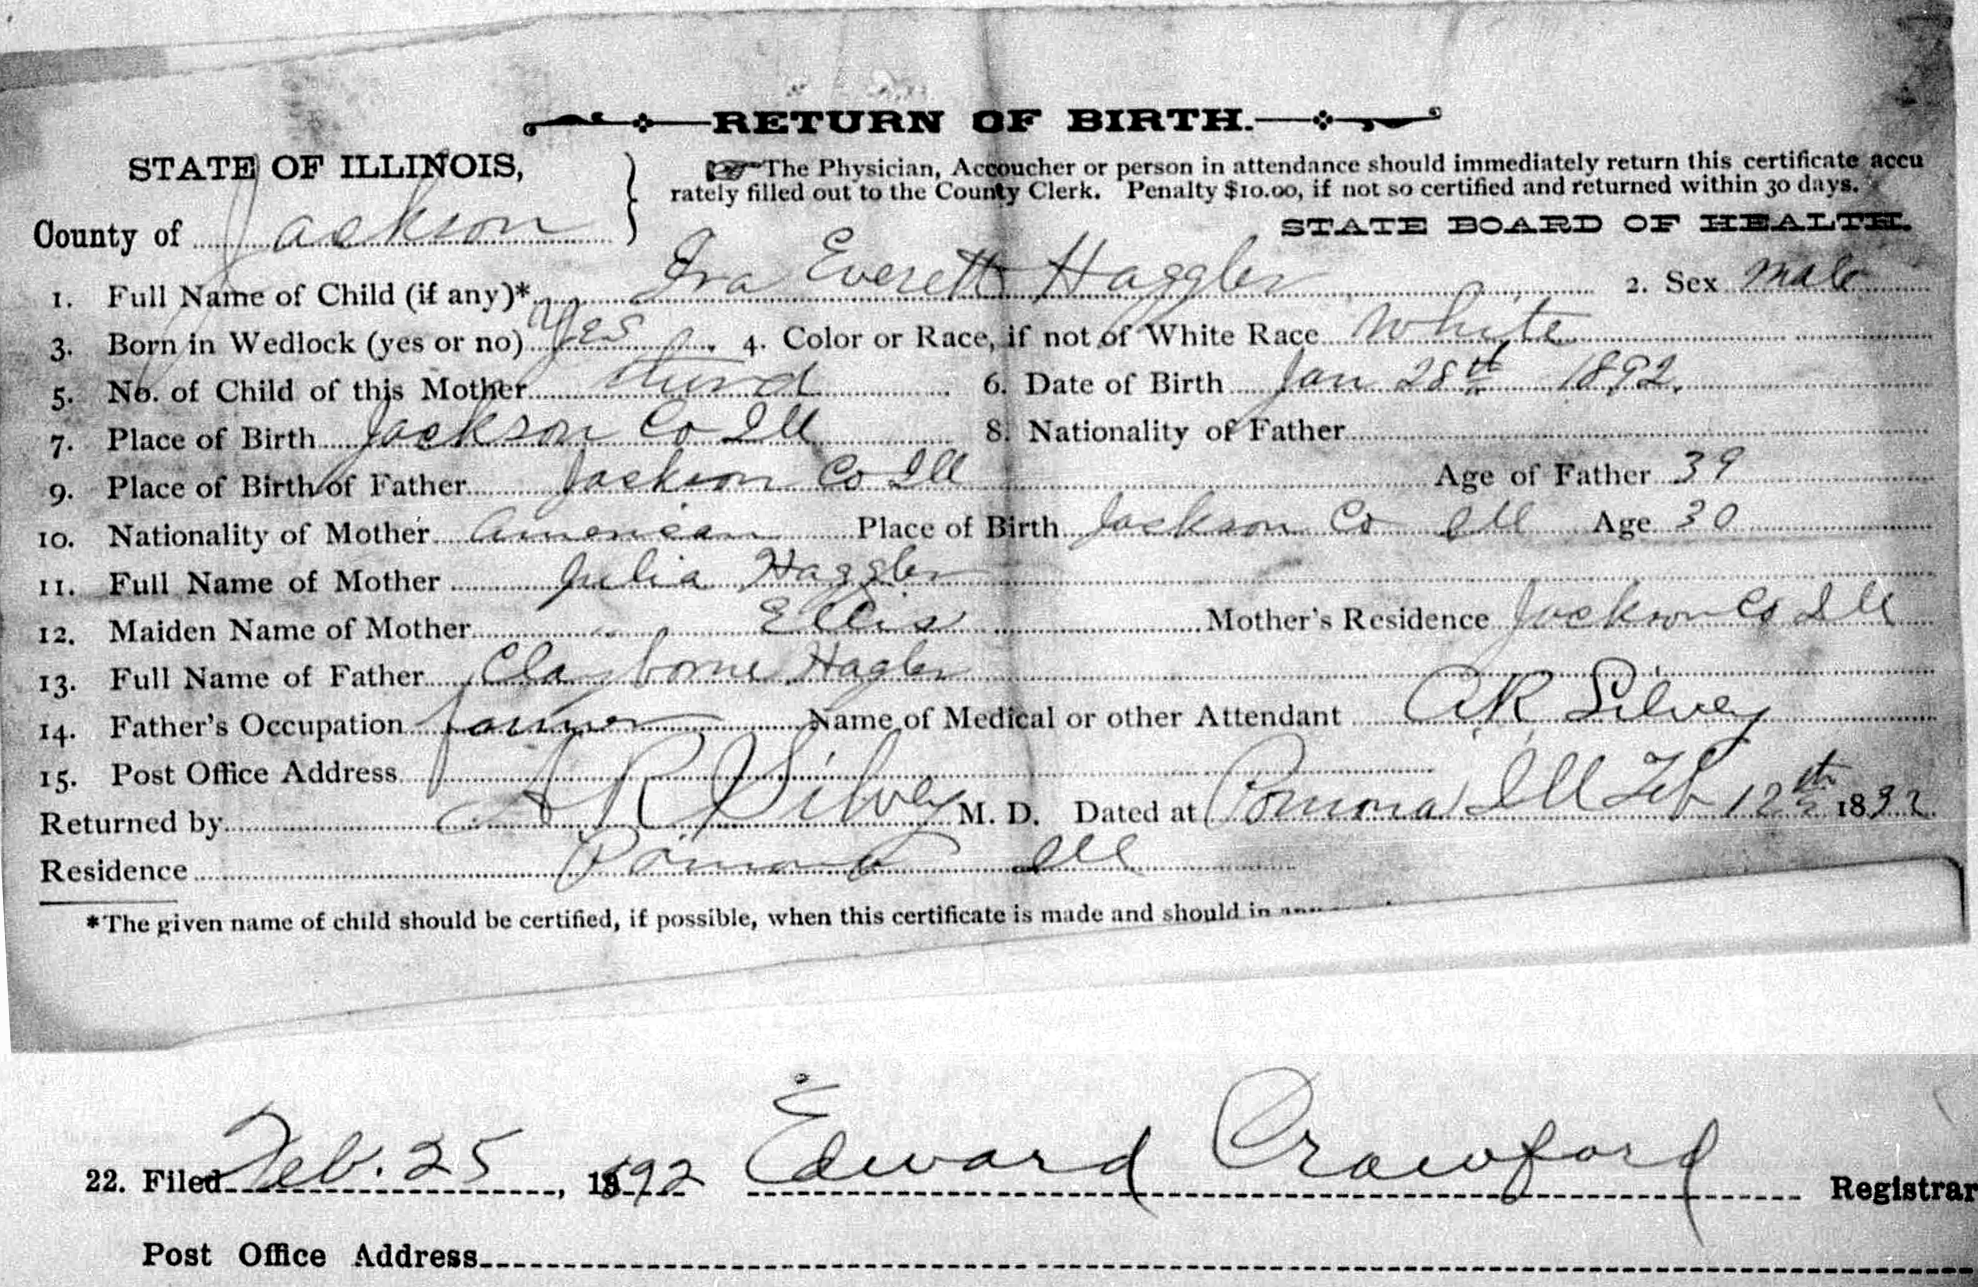 RETURN OF BIRTH.
STATE OF ILLINOIS,
County of Jackson
The Physician, Accoucher or person in attendance should immediately return this certificate accu
rately filled out to the County Clerk. Penalty $10.00, if not so certified and returned within 30 days.
STATE BOARD OF HEALTH.
1. Full Name of Child (if any)* Ira Everett Haggler 2. Sex Male
3. Born in Wedlock (yes or no) yes 4. Color or Race, if not of White Race White
5. No. of Child of this Mother third 6. Date of Birth Jan 28th 1892.
7. Place of Birth Jackson Co Ill 8. Nationality of Father
9. Place of Birth of Father Jackson Co Ill Age of Father 39
10. Nationality of Mother American Place of Birth Jackson Co Ill Age 30
11. Full Name of Mother Julia Haggler
12. Maiden Name of Mother Ellis Mother's Residence Jackson Co Ill
13. Full Name of Father Clayborne Hagler
14. Father's Occupation farmer Name of Medical or other Attendant A R Silvey
15. Post Office Address
Returned by A R Silvey M. D. Dated at Pomona Ill Feb 12th 1892
Residence Pomona Ill
*The given name of child should be certified, if possible, when this certificate is made and should in
22. Filed Feb. 25, 1892 Edward Crawford Registrar
Post Office Address